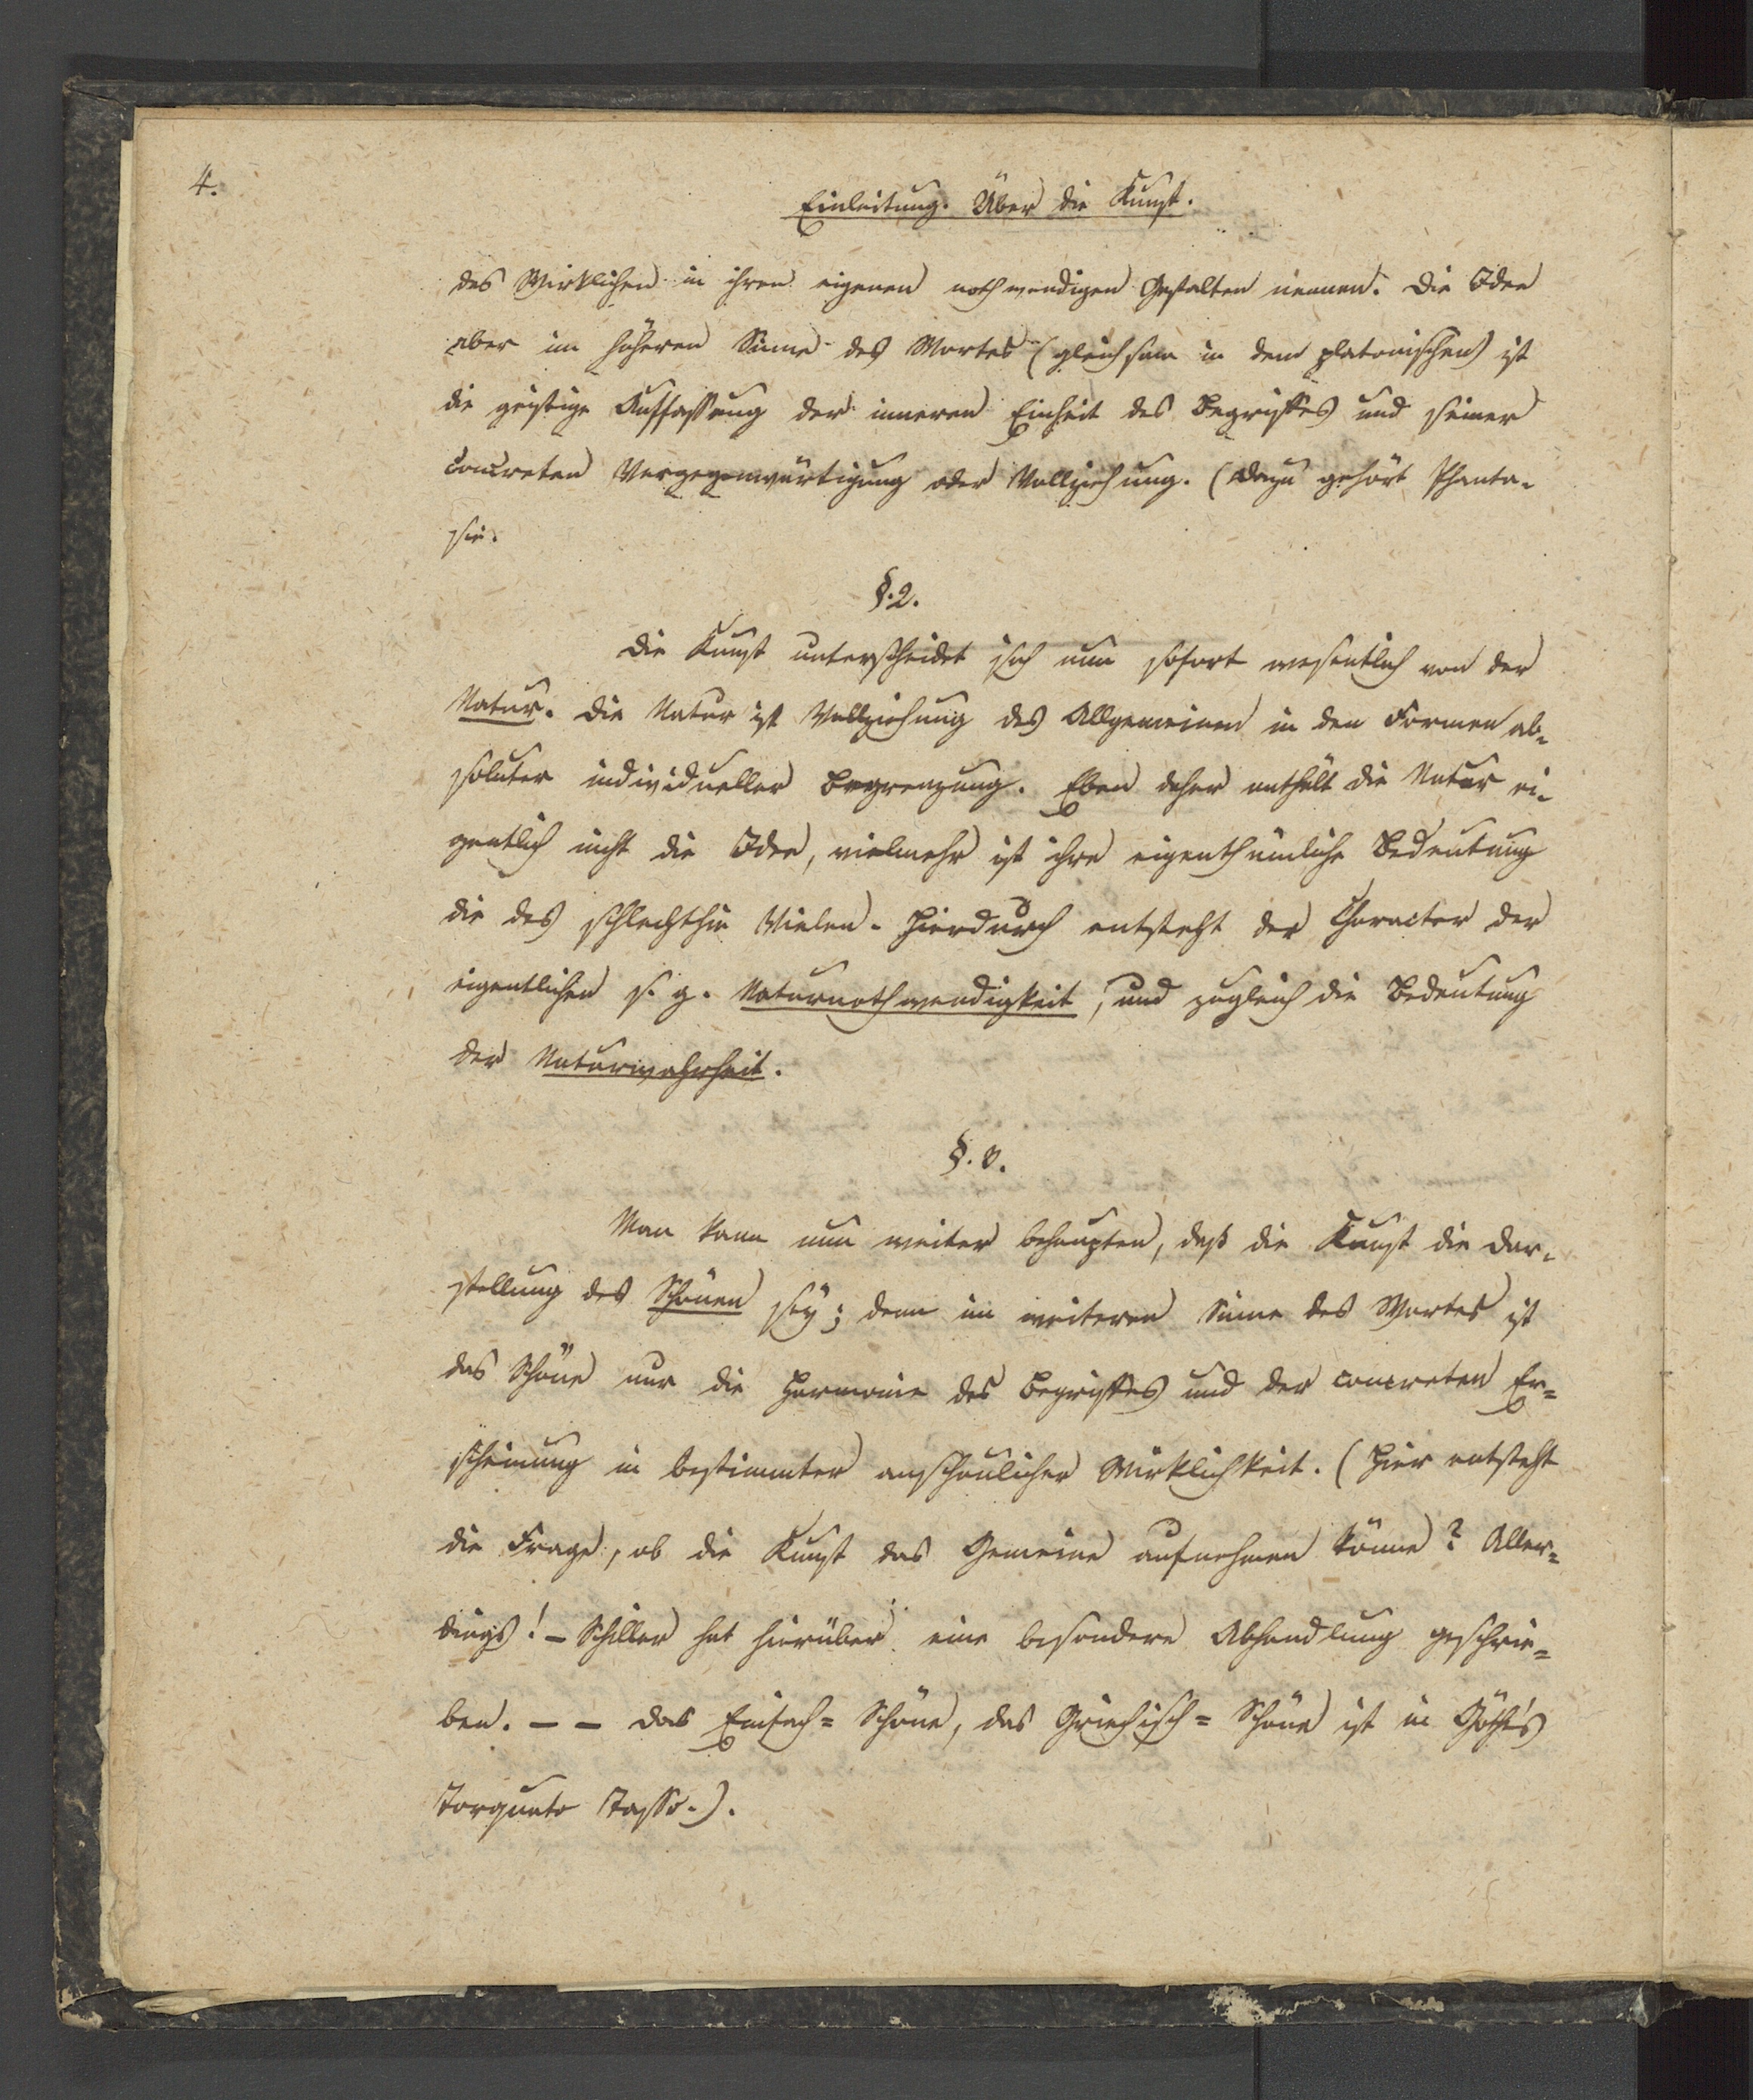 4.
Einleitung. Über die Kunst.
des Wirklichen in ihren eigenen nothwendigen Gestalten nennen. Die Idee
aber im höheren Sinne des Wortes (gleichsam in dem platonischen) ist
die geistige Auffassung der inneren Einheit des Begriffes und seiner
concreten Vergegenwärtigung oder Vollziehung. (Dazu gehört Phanta-
sie.
§. 2.
Die Kunst unterscheidet sich nun sofort wesentlich von der
Natur. Die Natur ist Vollziehung des Allgemeinen in den Formen ab-
soluter individueller Begrenzung. Eben daher enthält die Natur ei-
gentlich nicht die Idee, vielmehr ist ihre eigenthümliche Bedeutung
die des schlechthin Vielen. Hierdurch entsteht der Character der
eigentlichen s. g. Naturnothwendigkeit, und zugleich die Bedeutung
der Naturwahrheit.
§. 3.
Man kann nun weiter behaupten, daß die Kunst die Dar-
stellung des Schönen sey; denn im weiteren Sinne des Wortes ist
das Schöne nur die Harmonie des Begriffes und der concreten Er=
scheinung in bestimmter anschaulicher Wirklichkeit. (Hier entsteht
die Frage, ob die Kunst das Gemeine aufnehmen könne? Aller=
dings! – Schiller hat hierüber eine besondere Abhandlung geschrie=
ben. – – Das Einfach=Schöne, das Griechisch=Schöne ist in Göthe's
Torquato Tasso.).